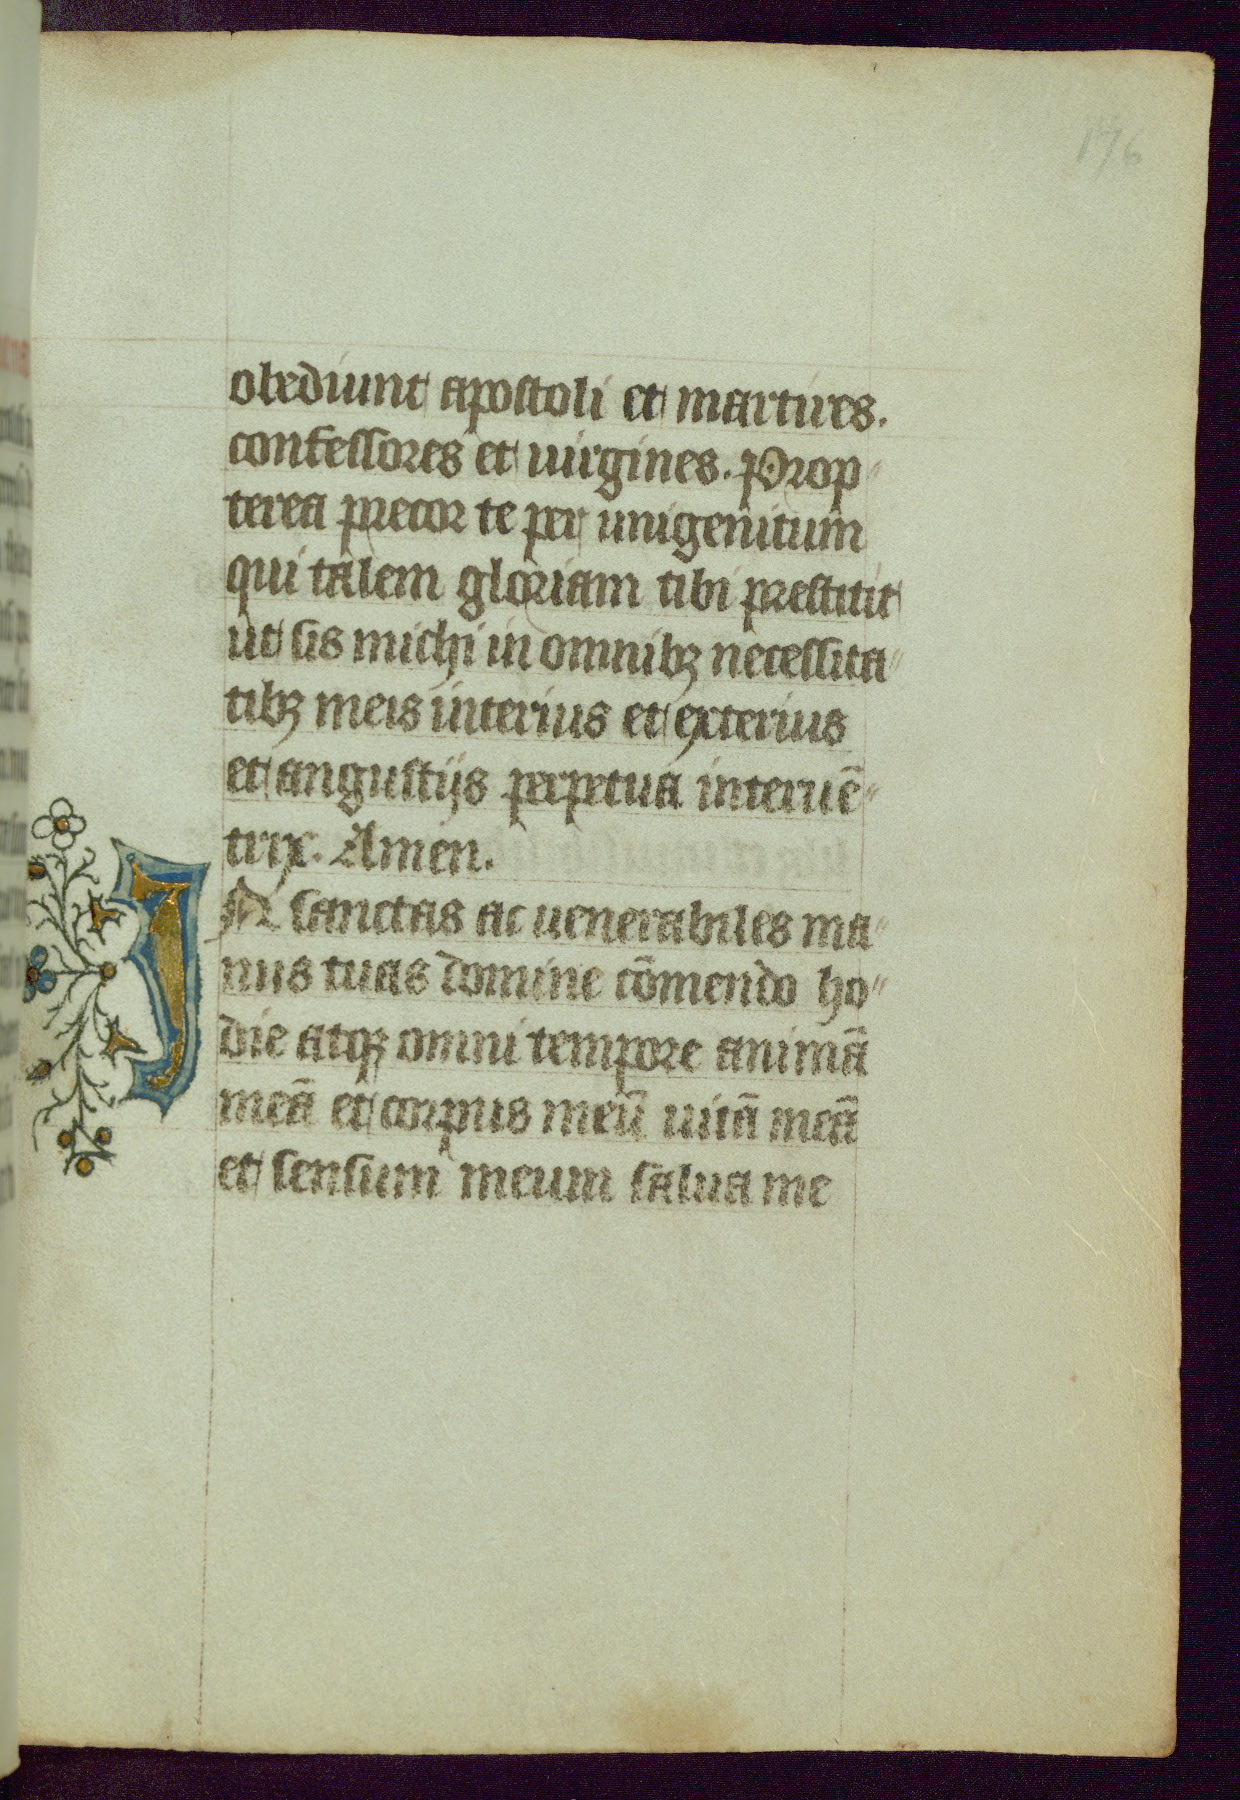 176
obediunt apostoli et martires.
confessores et uirgines. Prop"
terea precor te per unigenitum
qui talem gloriam tibi prestitit
ut sis michi in omnibꝫ necessita"
tibꝫ meis interius et exterius
et angustijs perpetua interuē"
trix. Amen.
IN sanctas ac uenerabiles ma"
nus tuas domine cōmendo ho"
die atqꝫ omni tempore animā
meā et corpus meū uitā meā
et sensum meum salua me